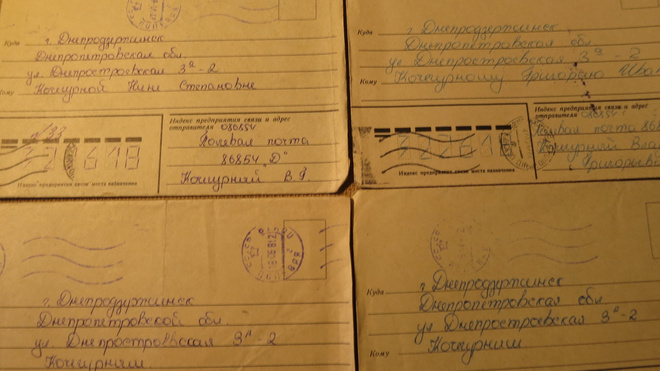 Куда г. Днепродзержинск
Днепропетровская обл.
ул. Днепростроевская 3а-2
Кому Кочурной Нине Степановне
Индекс предприятия связи и адрес
отправителя 086854
Полевая почта
86854 "D"
Кочурный В. Г.
Индекс предприятия связи места назначения
г. Днепродзержинск
Днепропетровская обл.
ул. Днепростроевская 3а-2
Кому Кочурному Григорию
322618
Индекс предприятия связи и адрес
отправителя 086854
Полевая почта
Кочурный
Индекс предприятия связи места назначения
г. Днепродзержинск
Днепропетровской обл
ул. Днепростроевская 3а-2
Кочурным
Куда г. Днепродзержинск
Днепропетровская обл
ул Днепростроевская 3а-2
Кому Кочурным